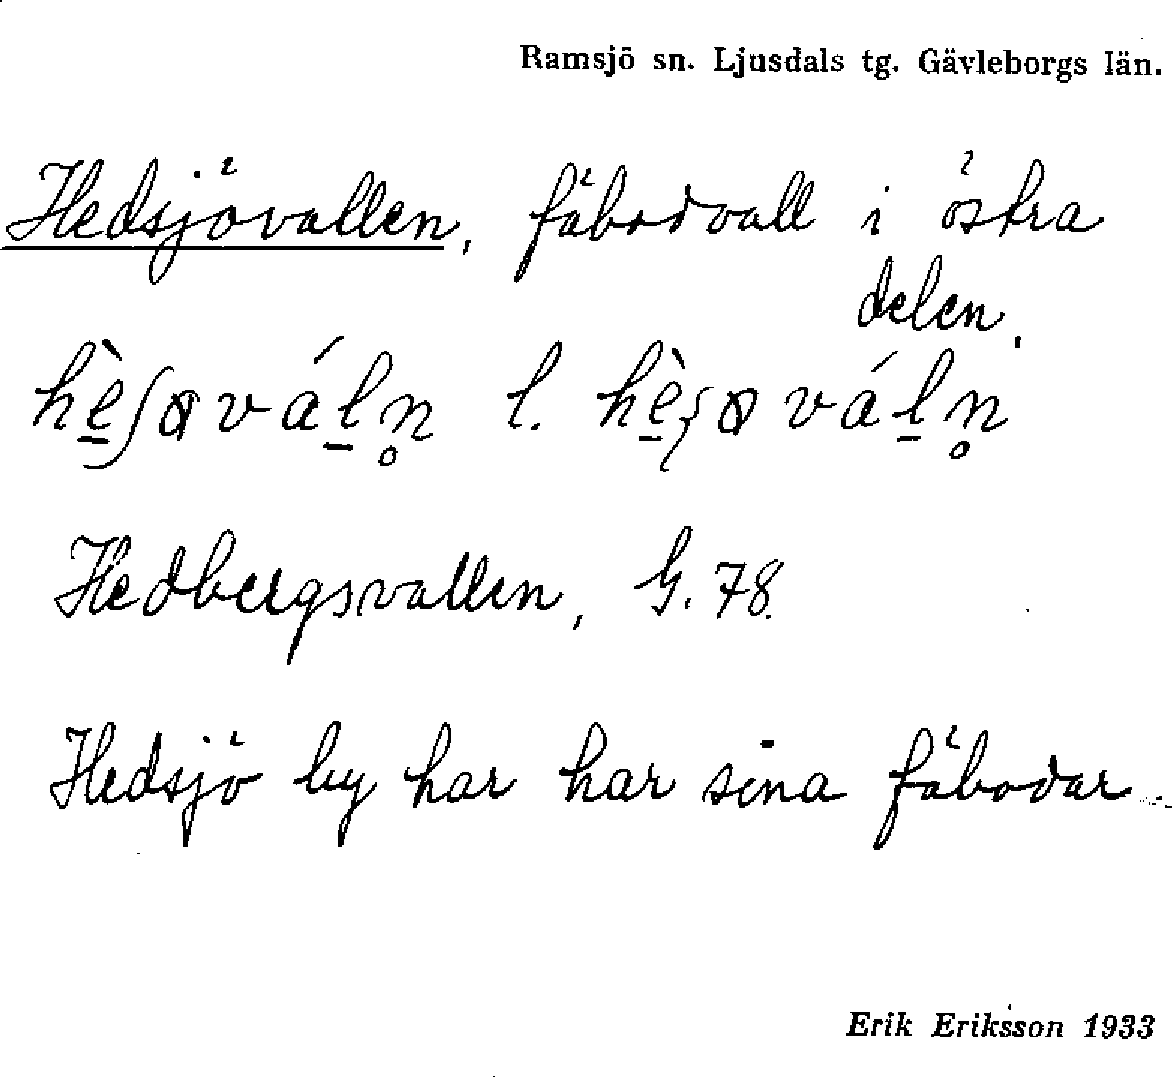 Ramsjö sn. Ljusdals tg. Gävleborgs län.
Hedsjövallen, fäbodvall i östra
delen.
hèʃøváln̥ l. hèʃøváln̥
Hedbergsvallen, G. 78.
Hedsjö by har har sina fäbodar.
Erik Eriksson 1933